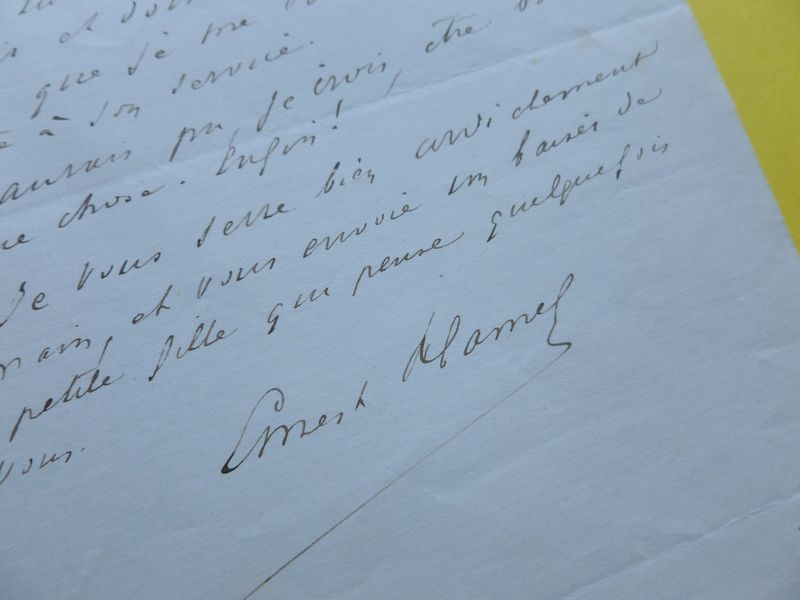 et
que je me
à son service.
aurais pu, je crois, être
chose. Enfin!
Je vous serre bien cordialement
main, et vous envoie un baiser de
petite fille qui pense quelquefois
vous.
Ernest Hamel